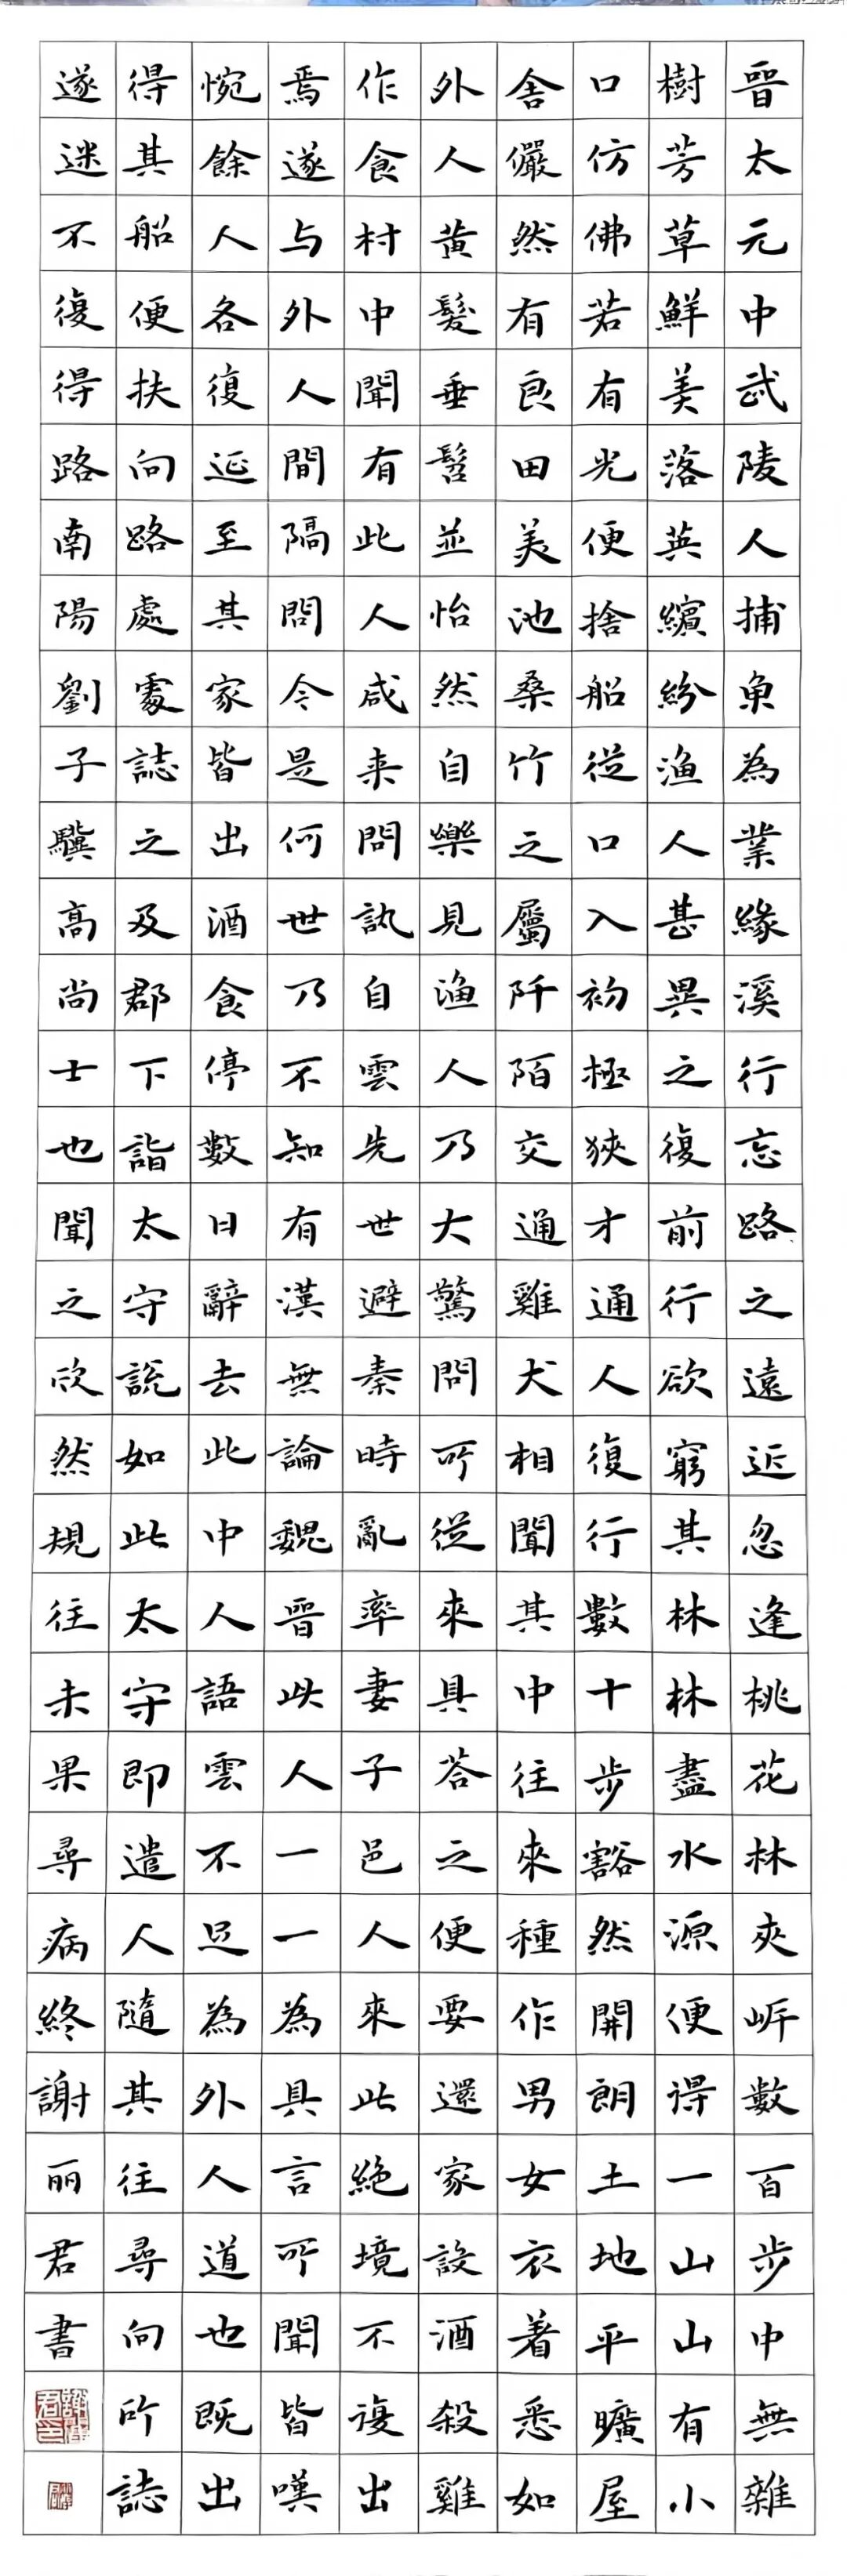 晉太元中武陵人捕魚為業緣溪行忘路之遠近忽逢桃花林夾岸數百步中無雜
樹芳草鮮美落英繽紛漁人甚異之復前行欲窮其林林盡水源便得一山山有小
口仿佛若有光便捨船從口入初極狹才通人復行數十步豁然開朗土地平曠屋
舍儼然有良田美池桑竹之屬阡陌交通雞犬相聞其中往來種作男女衣着悉如
外人黃髮垂髫並怡然自樂見漁人乃大驚問所從來具荅之便要還家設酒殺雞
作食村中聞有此人咸来問訊自雲先世避秦時亂率妻子邑人來此絕境不複出
焉遂与外人間隔問今是何世乃不知有漢無論魏晉此人一一為具言所聞皆嘆
惋餘人各復延至其家皆出酒食停數日辭去此中人語雲不足為外人道也既出
得其船便扶向路處處誌之及郡下詣太守說如此太守即遣人隨其往尋向所誌
遂迷不復得路南陽劉子驥高尚士也聞之欣然規往未果尋病終謝丽君書